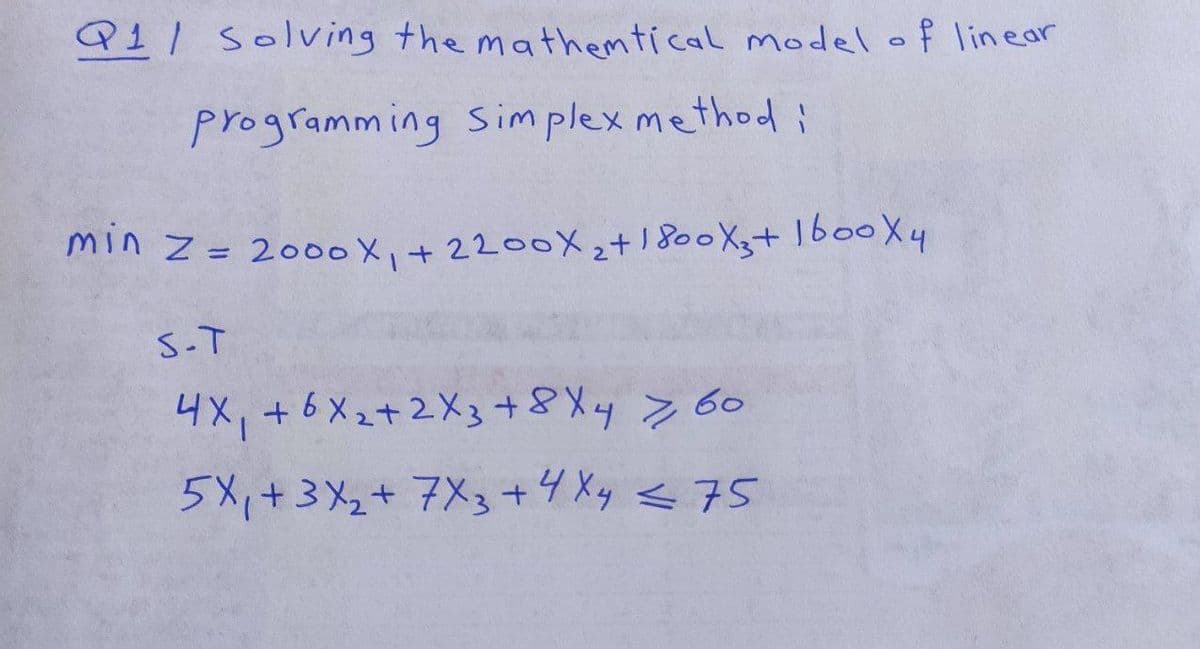 Q1 / Solving the mathemtical model of linear
programming Simplex method :
min Z = 2000X₁ + 2200X₂ + 1800X₃ + 1600X₄
S.T
4X₁ + 6X₂ + 2X₃ + 8X₄ ⩾ 60
5X₁ + 3X₂ + 7X₃ + 4X₄ ⩽ 75